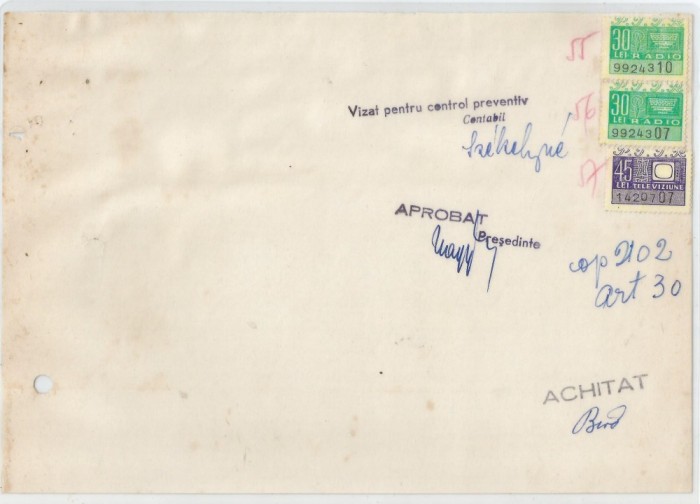 55
30
LEI RADIO
9924310
Vizat pentru control preventiv
Contabil
Székelyné
56
30
LEI RADIO
9924307
57
45
LEI TELEVIZIUNE
1420707
APROBAT
Președinte
Nagy
cap 2102
art 30
ACHITAT